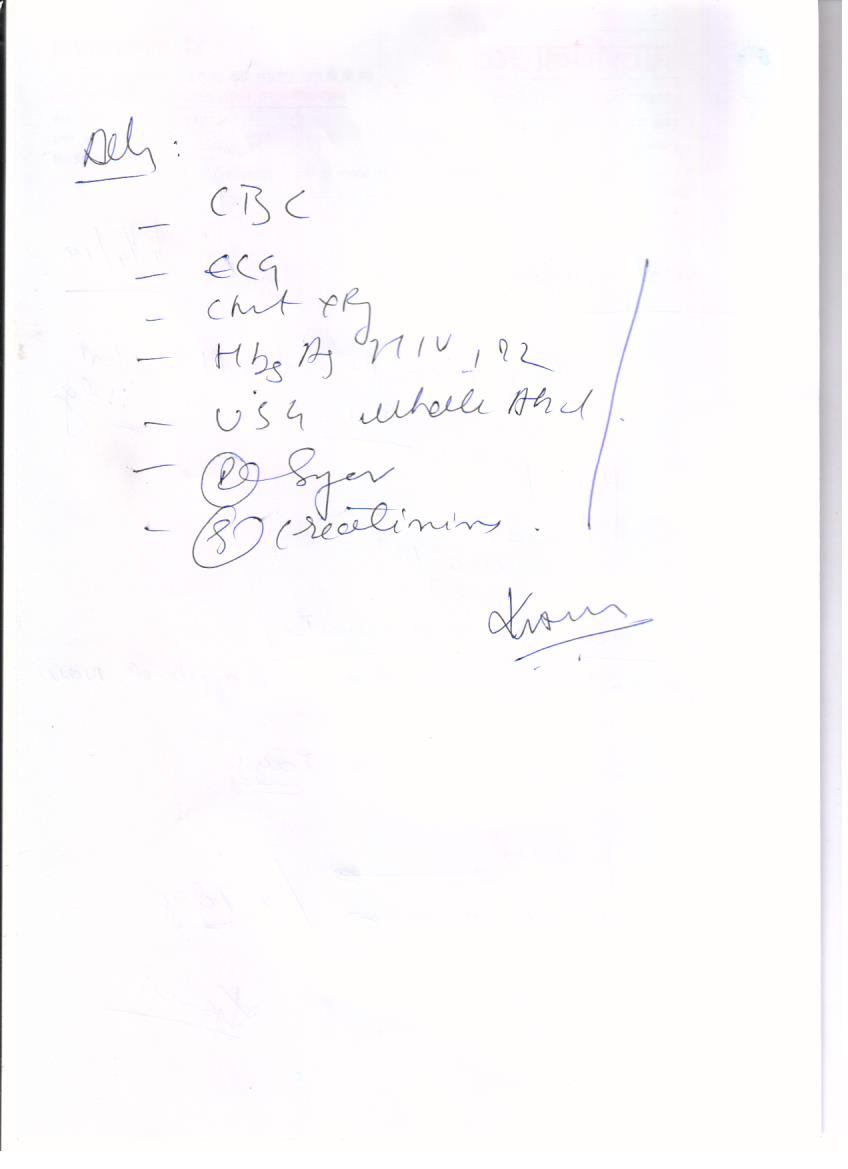 Adv :
- CBC
- ECG
- Chest XRy
- HbsAg HIV 1,2
- USG whole Abd.
- (R) Sugar
- (S) Creatinine.